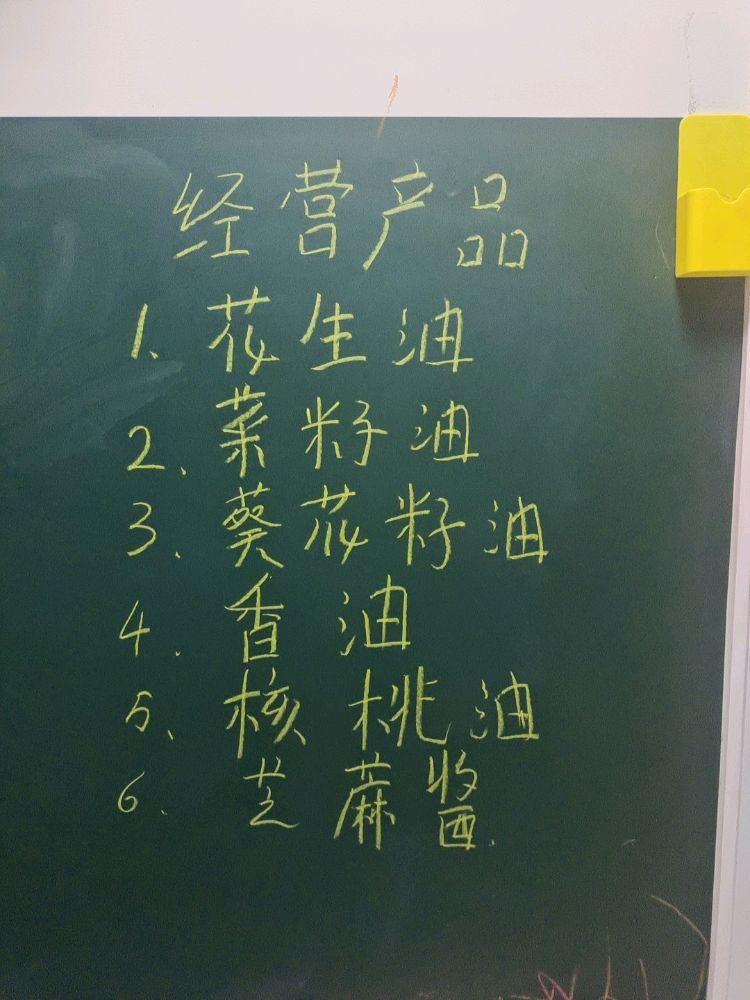 经营产品
1、花生油
2、菜籽油
3、葵花籽油
4、香油
5、核桃油
6、芝蔴酱